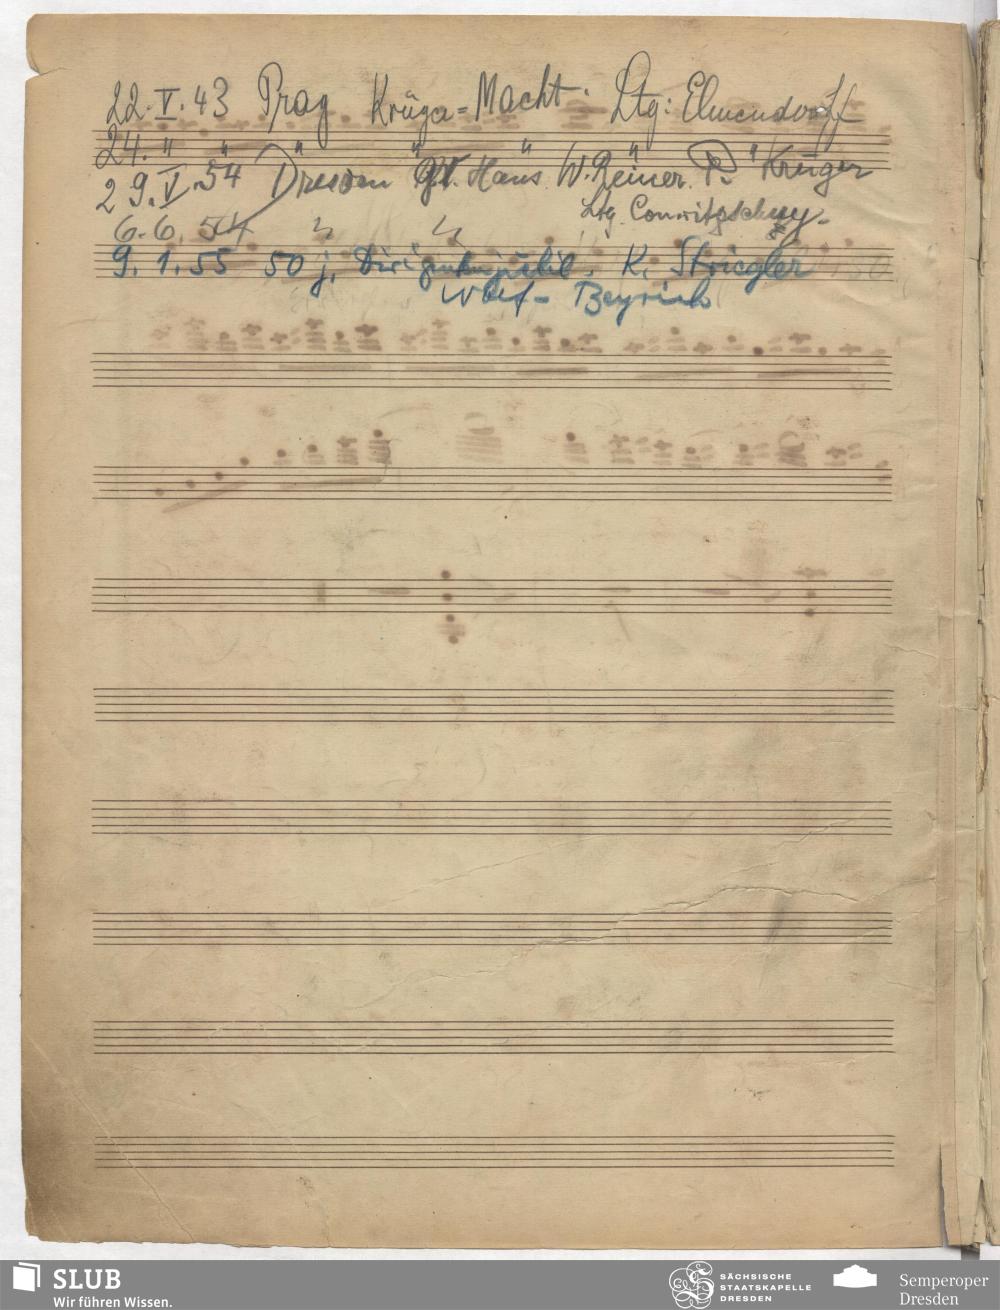 22. V. 43 Prag Krüger = Macht. Ltg: Elmendorff
24. " " " " " "
29. V. 54 Dresden Gr. Haus W. Reiner. P. Krüger
Ltg. Conwitzschny.
6. 6. 54 " "
9. 1. 55 50 j. Dirigentenjubil. K. Striegler
Wolf - Beyrich
SLUB
Wir führen Wissen.
SÄCHSISCHE
STAATSKAPELLE
DRESDEN
Semperoper
Dresden